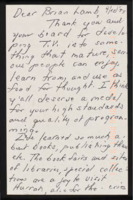 Dear Brian Lamb,
Thank you and
your board for develo-
ping T.V. is some-
thing that mature, sin-
people can enjoy,
learn from, and use as
food for thought. I think
y'all deserve a medal
for your high standards
and quality of program-
ming.
I've learned so much a-
bout books, publishing
etc. The book fairs and
of libraries, special
ions are a joy to visit